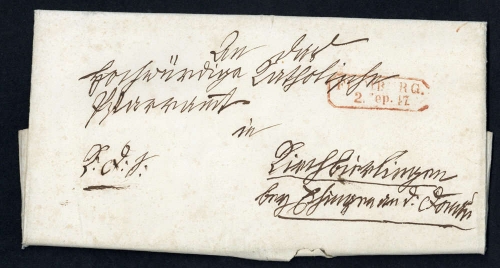 An das
Hochwürdige Catholische
Pfarramt
in
Kirchbierlingen
bey Ehingen an d. Donau